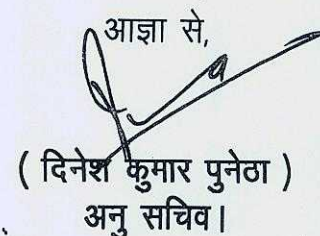 आज्ञा से,
( दिनेश कुमार पुनेठा )
अनु सचिव।